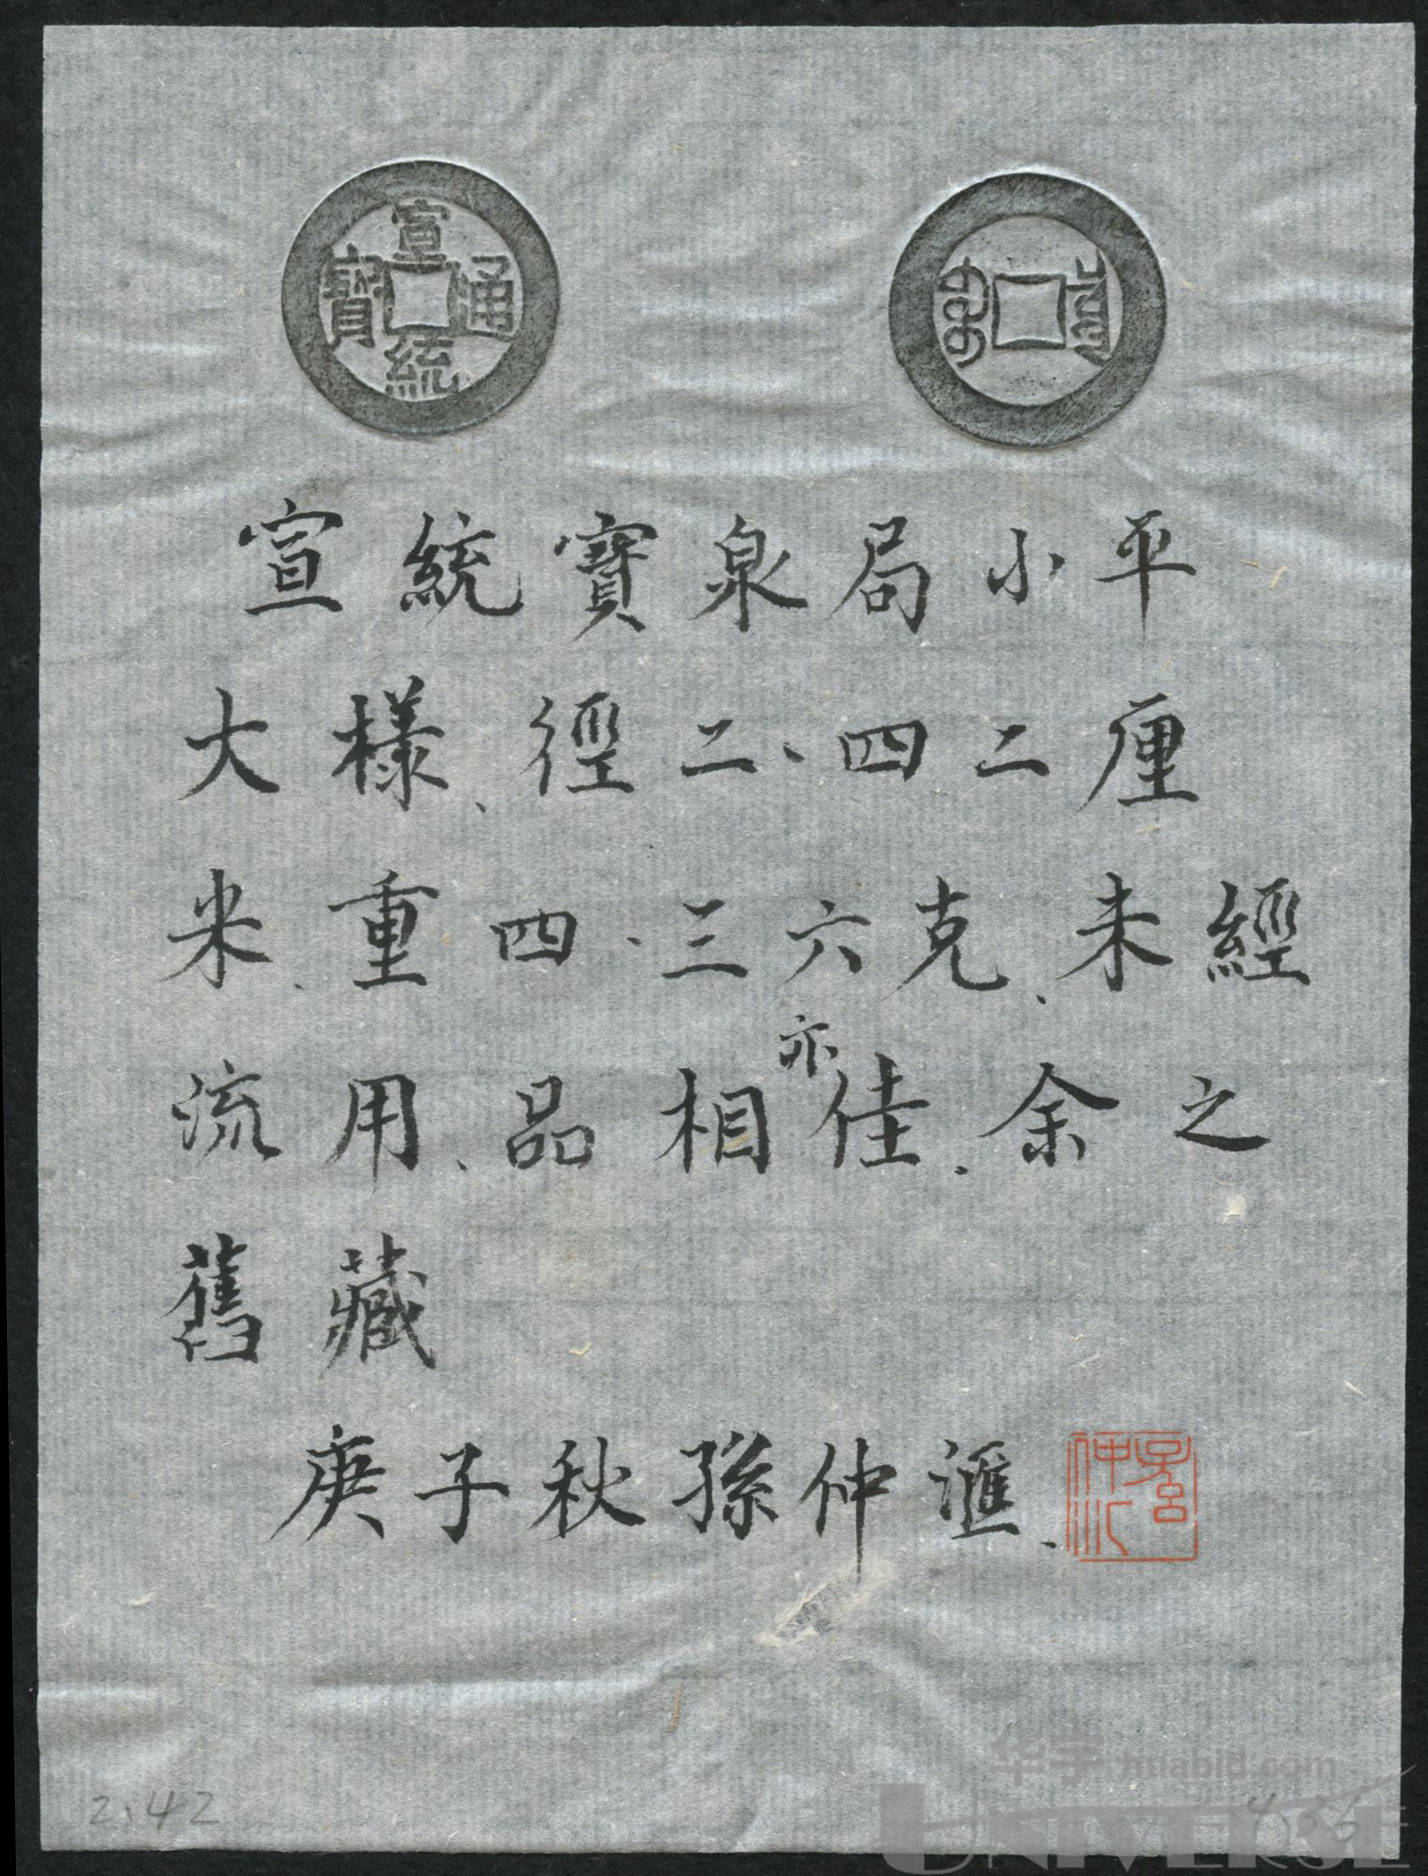 宣統通寶
宣統寶泉局小平
大樣、徑二、四二厘
米、重四、三六克、未經
流用、品相亦佳、余之
舊藏
庚子秋孫仲滙、
2.42
4.36
华宇 huabid.com
UNIVERSE